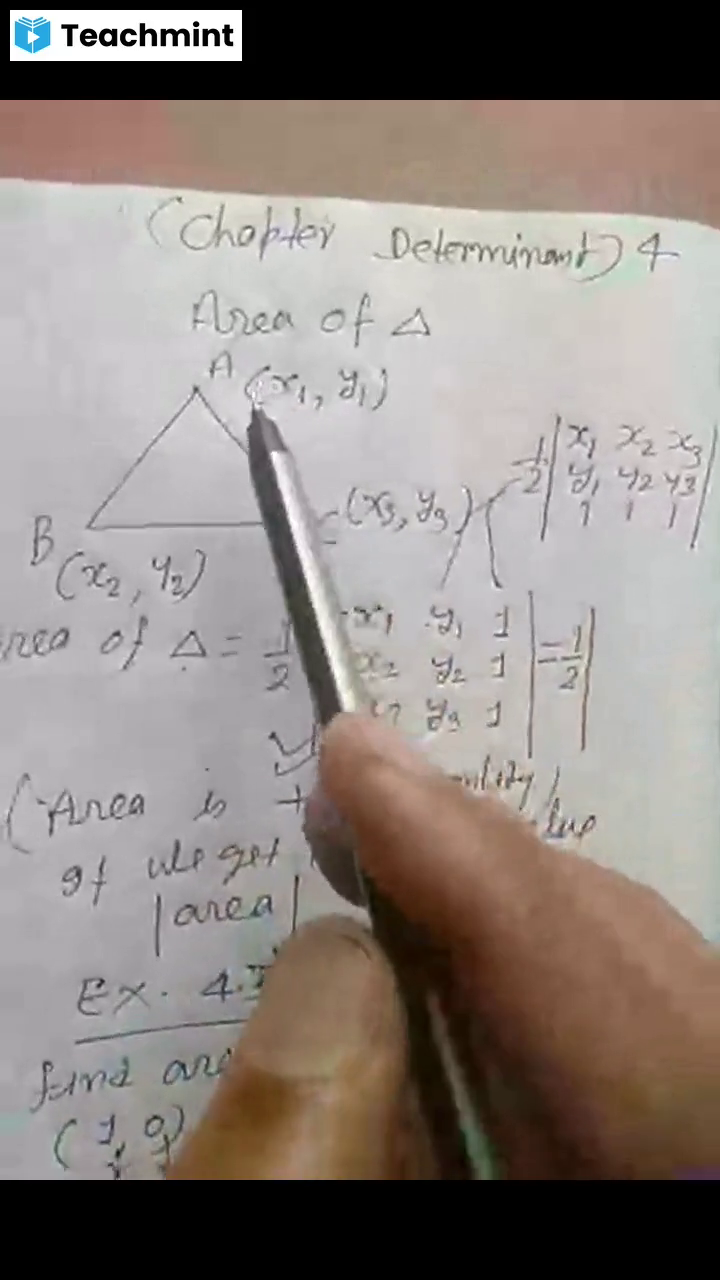 Teachmint
(Chapter Determinant) 4
Area of Δ
A (x₁, y₁)
B
(x₂, y₂)
C (x₃, y₃)
1/2 | x₁ x₂ x₃
y₁ y₂ y₃
1 1 1 |
Area of Δ = 1/2
x₁ y₁ 1
x₂ y₂ 1
y₃ 1 | = 1/2 |
(Area is +
If we get
|area|
Ex. 4.
find
(1, 0)